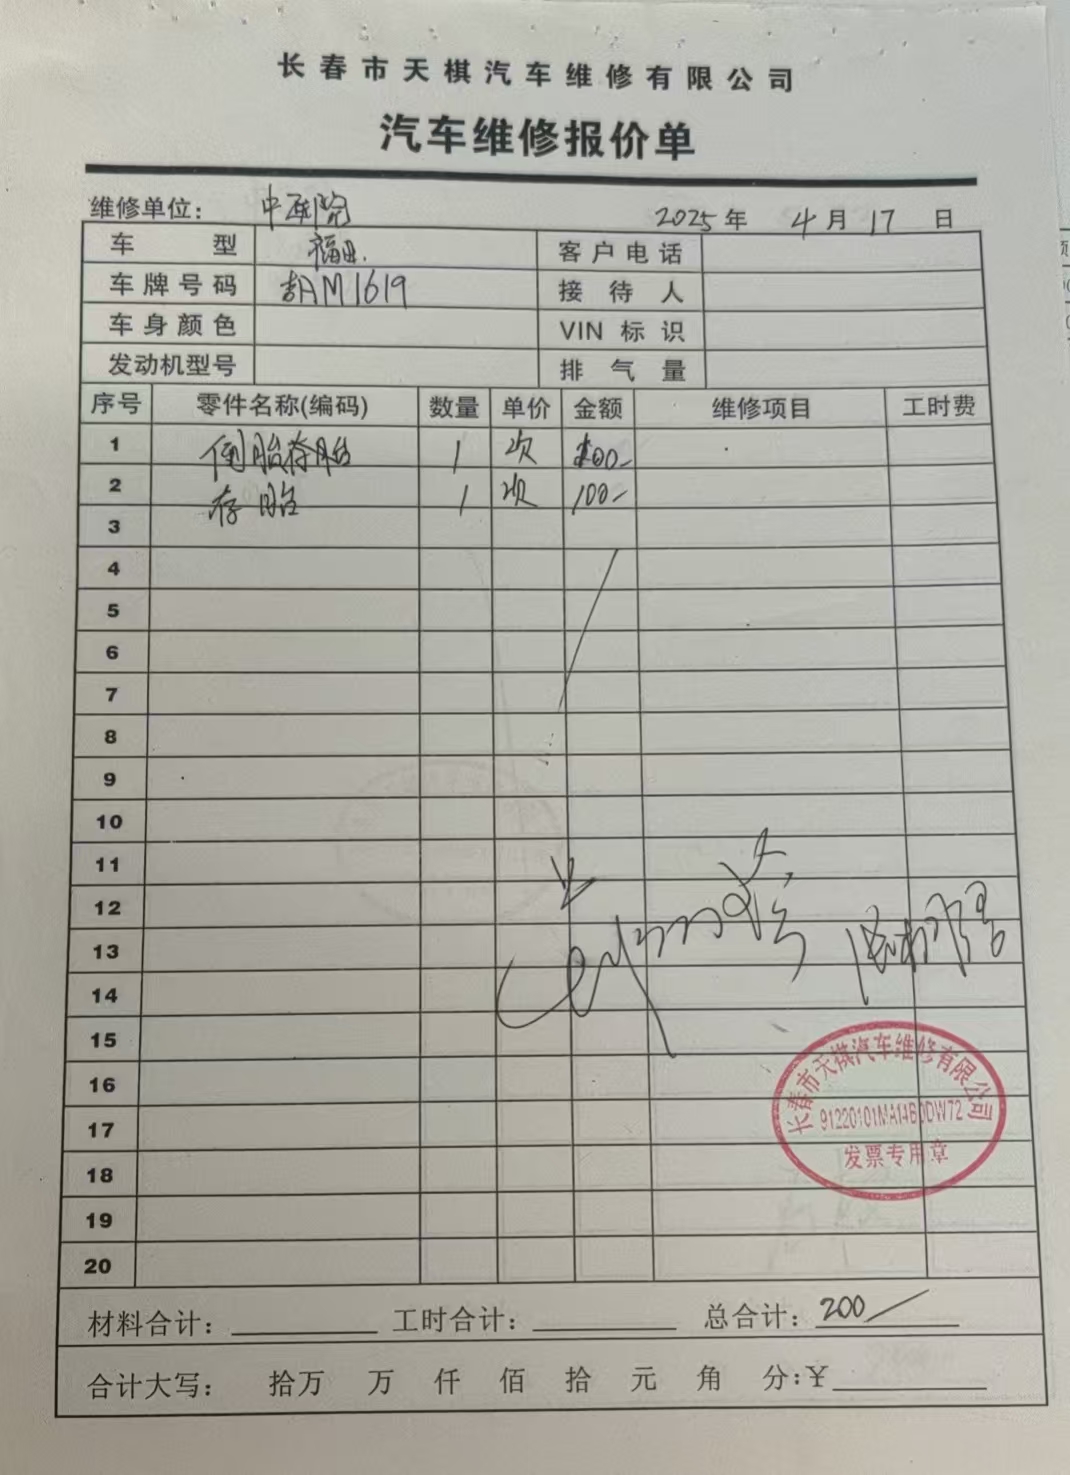 长春市天棋汽车维修有限公司
汽车维修报价单
维修单位：
2025年 4月17日
车型 福田 客户电话
车牌号码 吉AM1619 接待人
车身颜色 VIN标识
发动机型号 排气量
序号 零件名称(编码) 数量 单价 金额 维修项目 工时费
1 倒胎存胎 1 次 100-
2 存胎 1 次 100-
3
4
5
6
7
8
9
10
11
12
13
14
15
16
17
18
19
20
长春市天棋汽车维修有限公司
91220101MA14B0DW72
发票专用章
材料合计： 工时合计： 总合计：200
合计大写： 拾万 万 仟 佰 拾 元 角 分：￥